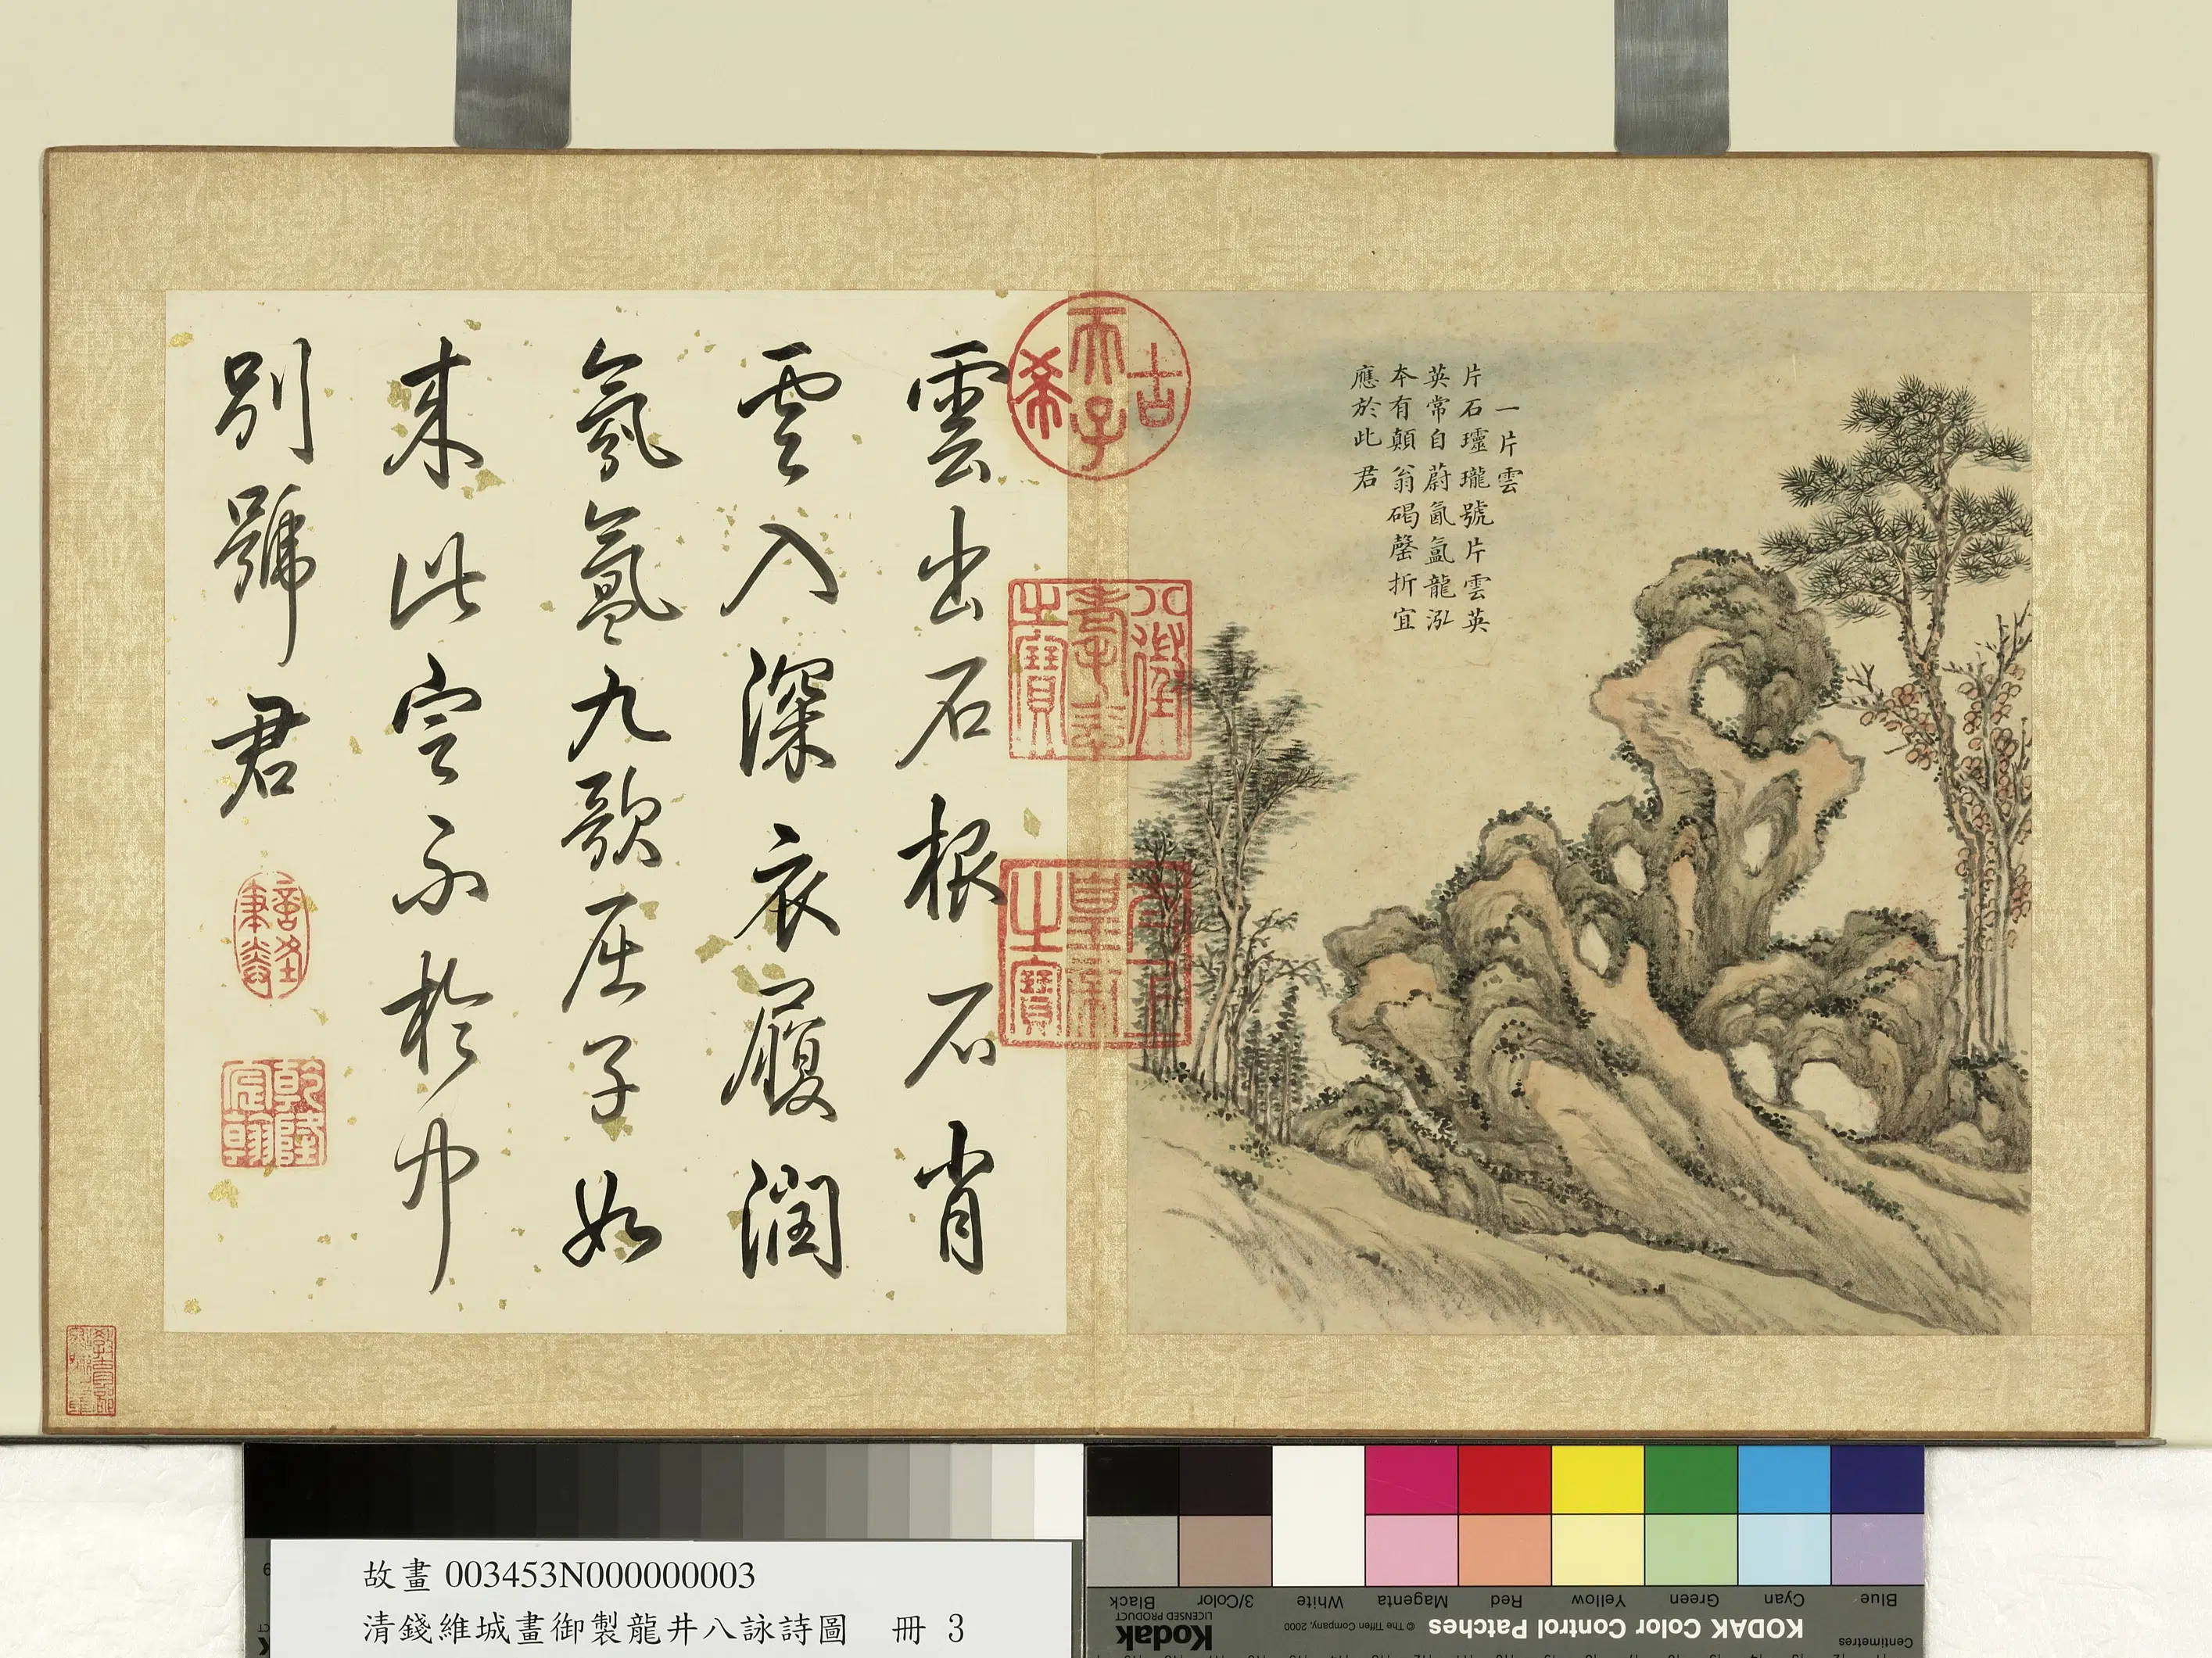 一片雲
片石瓏號片雲英
英常自蔚氤氳龍泓
本有顛翁碣罄折宜
應於此君
古希天子
八徵耄念之寶
太上皇帝之寶
雲出石根石肖
雲入深衣履潤
氛氳九歌屈子如
來此定不於中
別號君
乾隆宸翰
故畫 003453N000000003
清錢維城畫御製龍井八詠詩圖 冊 3
Blue Cyan Green Yellow Red Magenta White 3/Color Black
Centimetres
KODAK Color Control Patches
© The Tiffen Company, 2000
Kodak
LICENSED PRODUCT